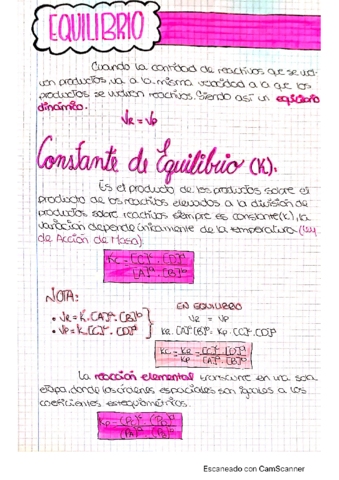 EQUILIBRIO
Cuando la cantidad de reactivos que se vuel-
ven productos va a la misma velocidad a la que los
productos se vuelven reactivos. Siendo así un equilibrio
dinámico.
VR = VP
Constante de Equilibrio (K).
Es el producto de los productos sobre el
producto de los reactivos elevados a la división de
productos sobre reactivos siempre es constante (K), la
variación depende únicamente de la temperatura (Ley
de Acción de Masa).
Kc = [C]ᶜ · [D]ᵈ
[A]ᵃ · [B]ᵇ
NOTA:
EN EQUILIBRIO
• VR = K · [A]ᵃ · [B]ᵇ
VR = VP
• VP = K · [C]ᶜ · [D]ᵈ
KR · [A]ᵃ [B]ᵇ = KP · [C]ᶜ · [D]ᵈ
Kc = KR = [C]ᶜ · [D]ᵈ
KP [A]ᵃ · [B]ᵇ
La reacción elemental transcurre en una sola
etapa, donde los órdenes son iguales a los
coeficientes estequiométricos.
Escaneado con CamScanner